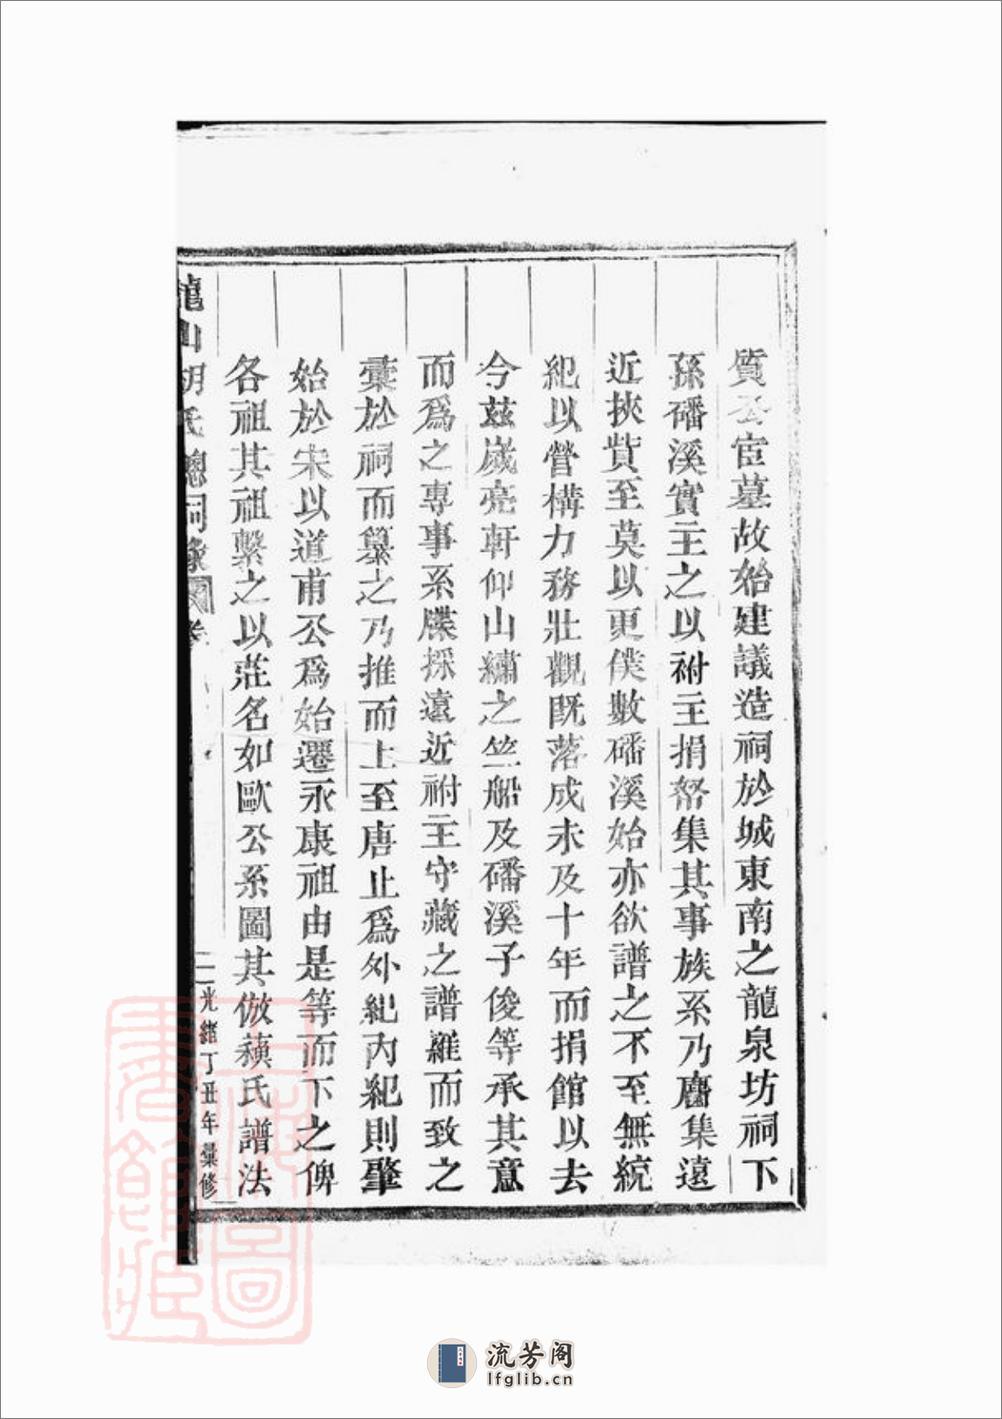 質公宦墓故始建議造祠於城東南之龍泉坊祠下
孫磻溪實主之以祔主捐帑集其事族系乃麕集遠
近挾貲至莫以更僕數磻溪始亦欲譜之不至無統
紀以營構力務壯觀既落成未及十年而捐館以去
今茲嵗亮軒仰山繡之竺船及磻溪子俊等承其意
而爲之專事系牒採遠近祔主守藏之譜羅而致之
彙於祠而纂之乃推而上至唐止爲外紀內紀則肇
始於宋以道甫公爲始遷永康祖由是等而下之俾
各祖其祖繫之以莊名如歐公系圖其倣蘇氏譜法
龍山胡氏總祠
二
光緒丁丑年彙修
流芳阁
lfglib.cn